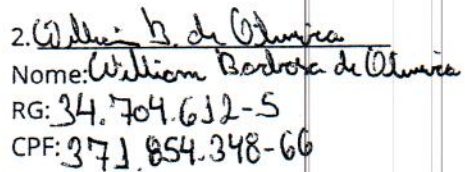 2. William B. de Oliveira
Nome: William Barbosa de Oliveira
RG: 34.704.612-5
CPF: 371.854.348-66